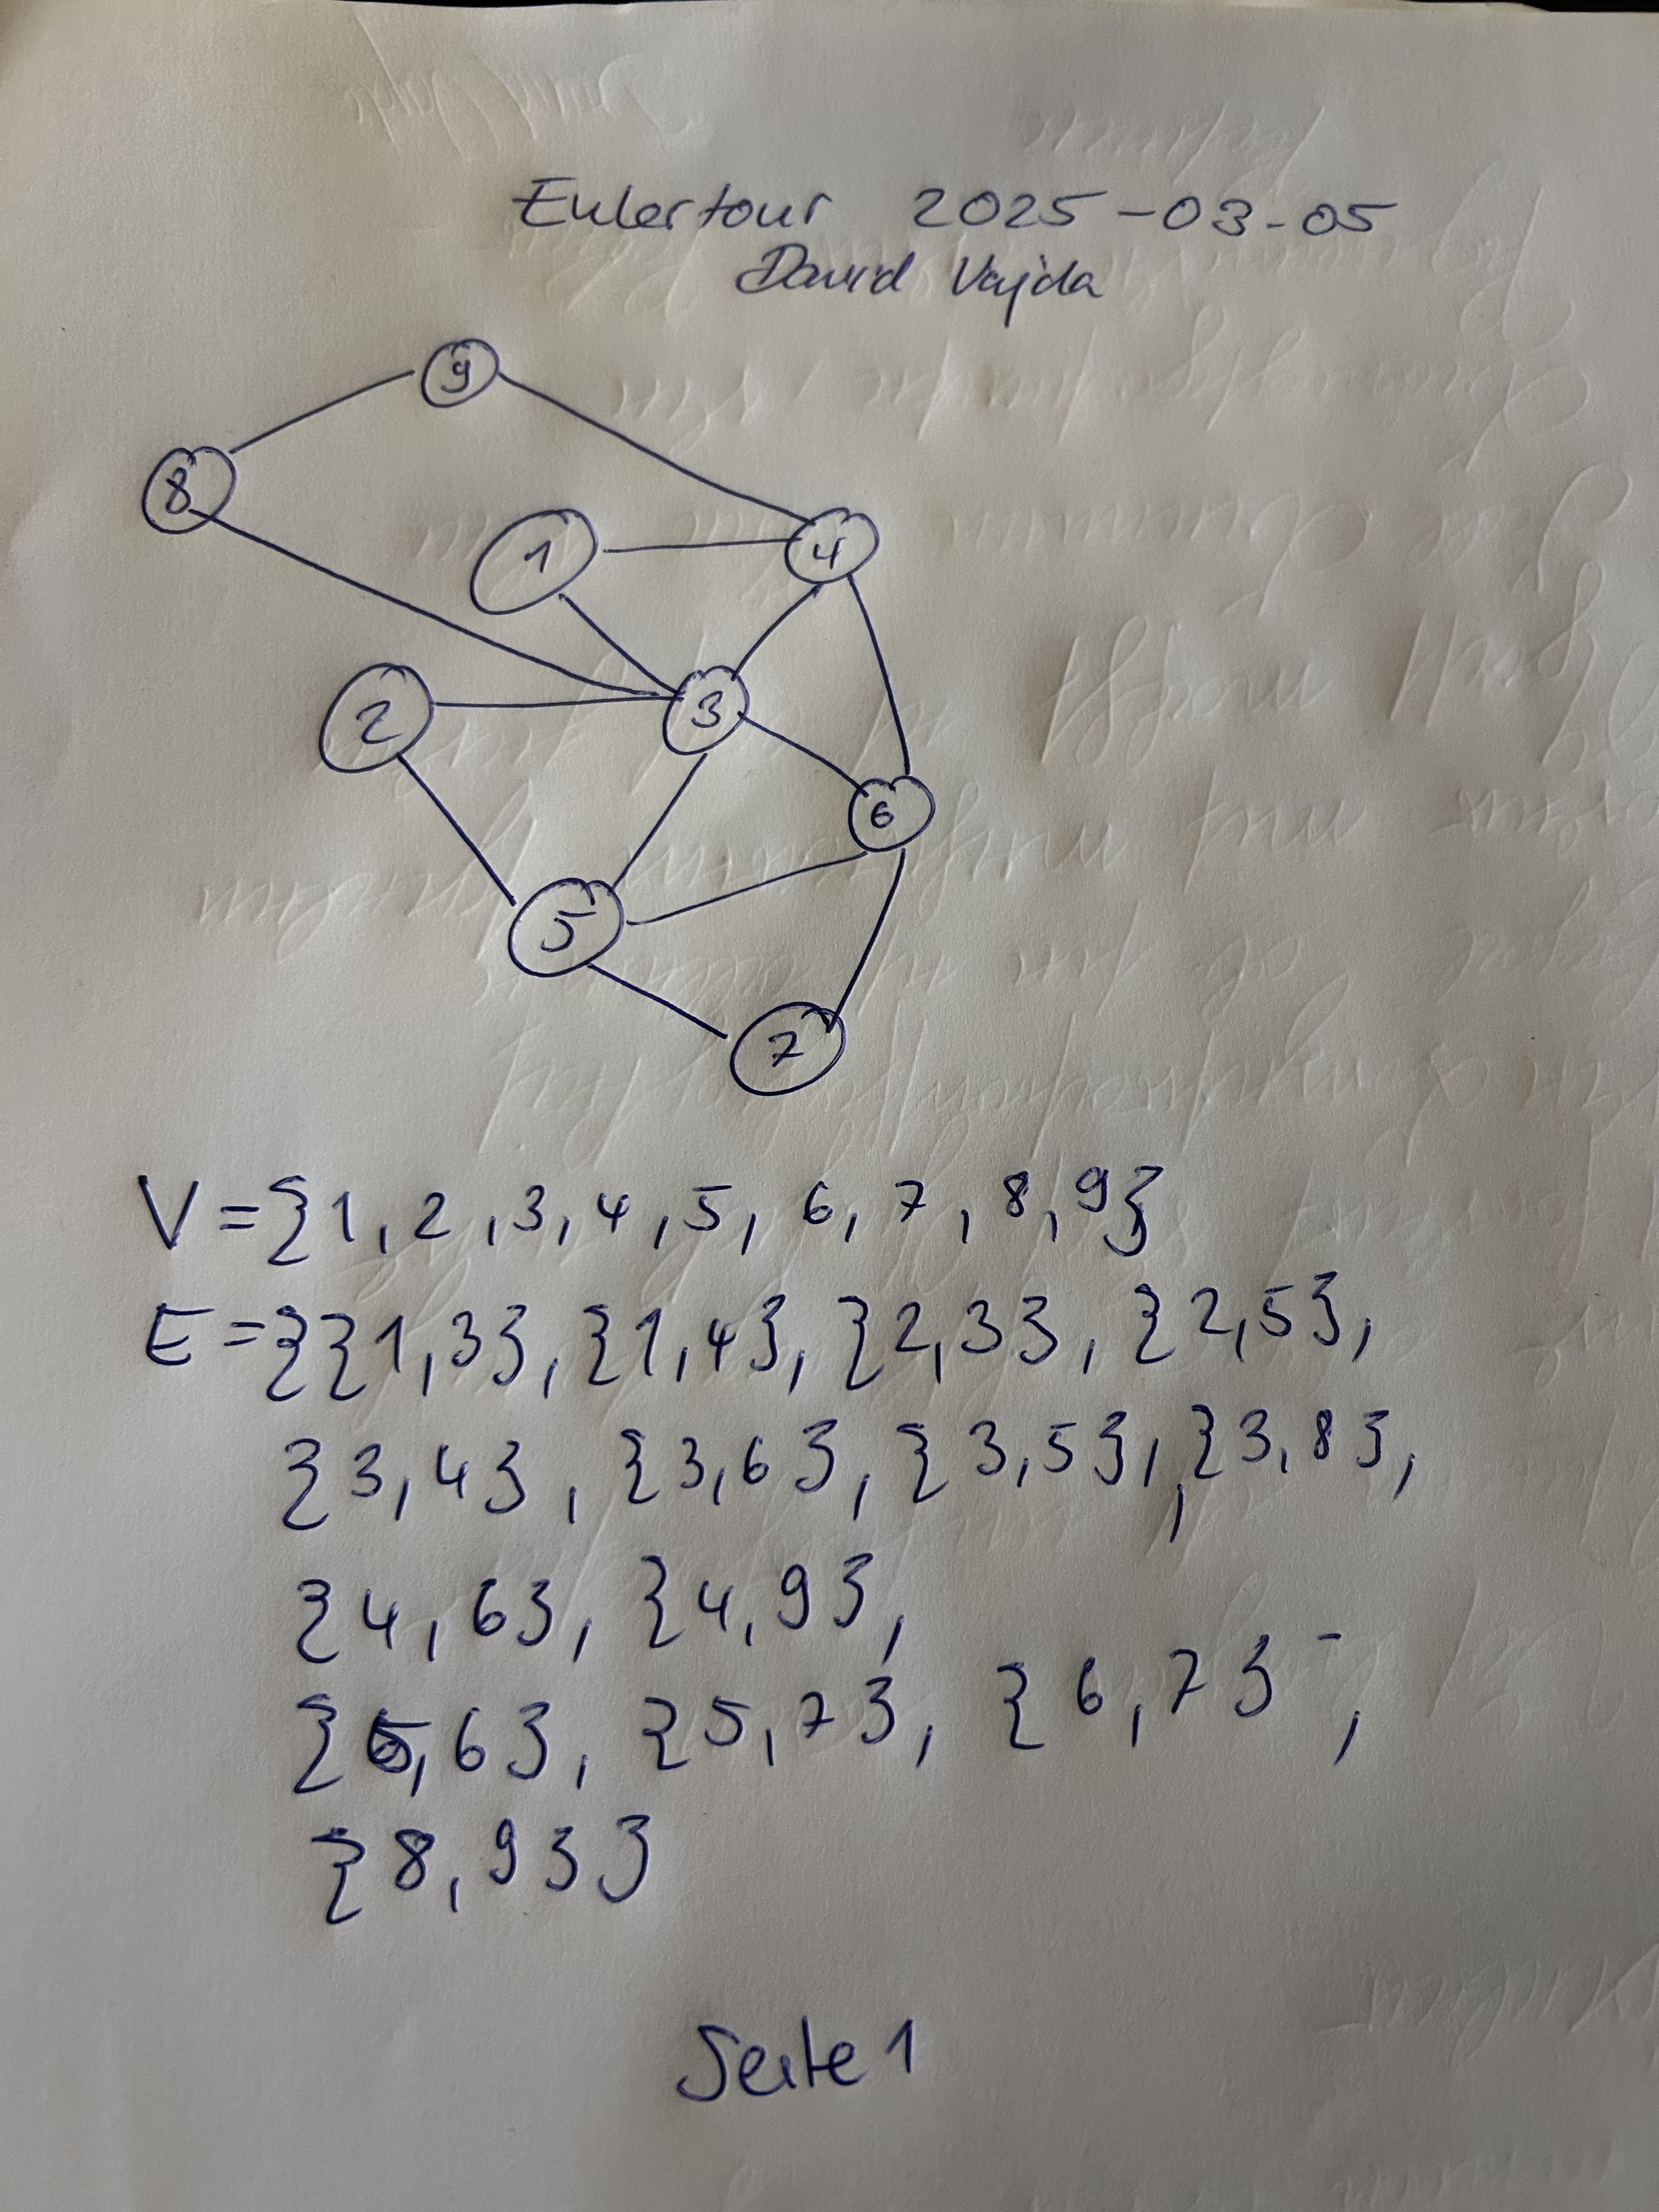 Eulertour 2025-03-05
David Vajda
8
9
2
1
5
3
4
7
6
V = {1,2,3,4,5,6,7,8,9}
E = {{1,3},{1,4},{2,3},{2,5},
{3,4},{3,6},{3,5},{3,8},
{4,6},{4,9},
{5,6},{5,7},{6,7},
{8,9}}
Seite 1